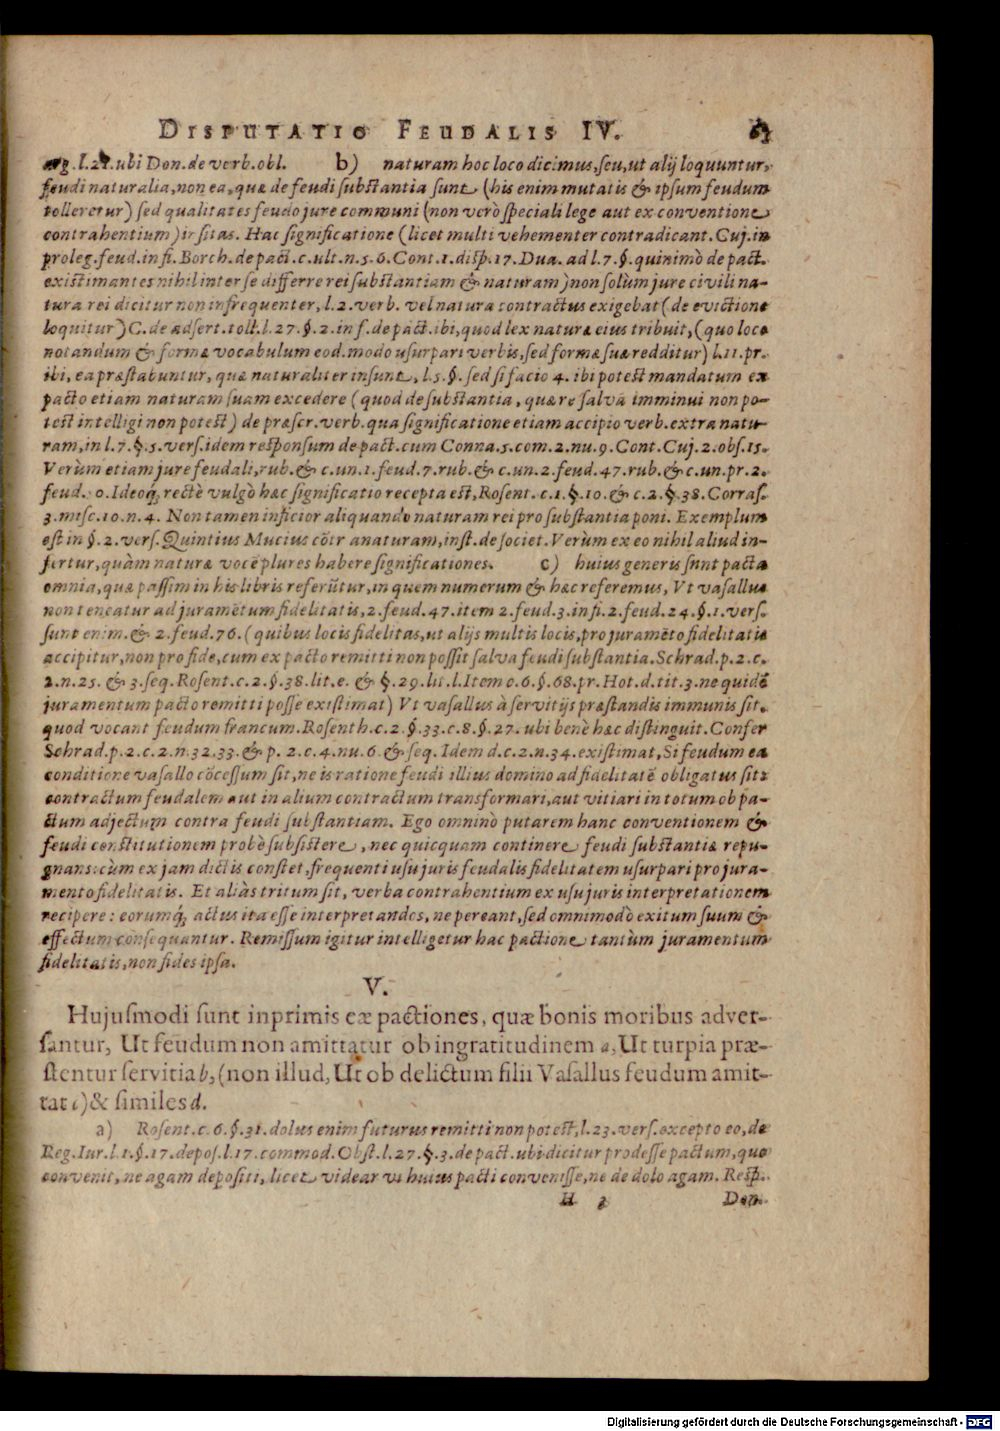 DISPUTATIO FEUDALIS IV.
arg. l. 21. ubi Don. de verb. obl. b) naturam hoc loco dicimus, seu, ut alij loquuntur,
feudi naturalia, non ea, quæ de feudi substantia sunt (his enim mutatis & ipsum feudum
tolleretur) sed qualitates feudo jure communi (non verò speciali lege aut ex conventione
contrahentium) insitas. Hac significatione (licet multi vehementer contradicant. Cuj. in
proleg. feud. in fi. Borch. de pact. c. ult. n. 5. 6. Cont. 1. disp. 17. Dua. ad l. 7. §. quinimò de pact.
existimantes nihil inter se differre rei substantiam & naturam) non solùm jure civili na-
tura rei dicitur non infrequenter, l. 2. verb. vel natura contractus exigebat (de evictione
loquitur) C. de ædsert. toll. l. 27. §. 2. in f. de pact. ibi, quod lex naturæ eius tribuit, (quo loco
notandum & formæ vocabulum eod. modo usurpari verbis, sed formæ suæ redditur) l. 11. pr.
ibi, ea præstabuntur, quæ naturaliter insunt, l. 5. §. sed si facio 4. ibi potest mandatum ex
pacto etiam naturam suam excedere (quod de substantia, quæ re salva imminui non po-
test intelligi non potest) de præscr. verb. qua significatione etiam accipio verb. extra natu-
ram, in l. 7. §. 5. vers. idem responsum de pact. cum Conna. 5. com. 2. nu. 9. Cont. Cuj. 2. obs. 15.
Verùm etiam jure feudali, rub. & c. un. 1. feud. 7. rub. & c. un. 2. feud. 47. rub. & c. un. pr. 2.
feud. 0. Ideoq́, rectè vulgò hæc significatio recepta est, Rosent. c. 1. §. 10. & c. 2. §. 38. Corras.
3. misc. 10. n. 4. Non tamen inficior aliquando naturam rei pro substantia poni. Exemplum
est in §. 2. vers. Quintius Mucius cōtra naturam, inst. de societ. Verùm ex eo nihil aliud in-
fertur, quàm naturæ vocē plures habere significationes. c) huius generis sunt pacta
omnia, quæ passim in his libris referūtur, in quem numerum & hæc referemus, Vt vasallus
non teneatur ad juramētum fidelitatis, 2. feud. 47. item 2. feud. 3. in fi. 2. feud. 24. §. 1. vers.
sunt enim. & 2. feud. 76. (quibus locis fidelitas, ut alijs multis locis, pro juramēto fidelitatis
accipitur, non pro fide, cum ex pacto remitti non possit salva feudi substantia. Schrad. p. 2. c.
2. n. 25. & 3. seq. Rosent. c. 2. §. 38. lit. e. & §. 29. lit. l. Item c. 6. §. 68. pr. Hot. d. tit. 3. ne quidē
juramentum pacto remitti posse existimat) Vt vasallus à servitijs præstandis immunis sit.
quod vocant feudum francum. Rosenth. c. 2. §. 33. c. 8. §. 27. ubi benè hæc distinguit. Confer
Schrad. p. 2. c. 2. n. 32. 33. & p. 2. c. 4. nu. 6. & seq. Idem d. c. 2. n. 34. existimat, Si feudum ea
conditione vasallo cōcessum sit, ne is ratione feudi illius domino ad fidelitatē obligatus sit:
contractum feudalem aut in alium contractum transformari, aut vitiari in totum ob pa-
ctum adjectum contra feudi substantiam. Ego omninò putarem hanc conventionem &
feudi constitutionem probè subsistere, nec quicquam continere feudi substantiæ repu-
gnans: cùm ex jam dictis constet, frequenti usu juris feudalis fidelitatem usurpari pro jura-
mento fidelitatis. Et aliàs tritum sit, verba contrahentium ex usu juris interpretationem
recipere: eorumq́, actus ita esse interpretandos, ne pereant, sed omnimodò exitum suum &
effectum consequantur. Remissum igitur intelligetur hac pactione tantùm juramentum
fidelitatis, non fides ipsa.
V.
Hujusmodi sunt inprimis eæ pactiones, quæ bonis moribus adver-
santur, Ut feudum non amittatur ob ingratitudinem a, Ut turpia præ-
stentur servitia b, (non illud, Ut ob delictum filii Vasallus feudum amit-
tat c) & similes d.
a) Rosent. c. 6. §. 31. dolus enim futurus remitti non potest, l. 23. vers. excepto eo, de
Reg. Iur. l. 1. §. 17. depos. l. 17. commod. Obst. l. 27. §. 3. de pact. ubi dicitur prodesse pactum, quo
convenit, ne agam depositi, licet videar vi huius pacti convenisse, ne de dolo agam. Resp.
H 3 Don.
Digitalisierung gefördert durch die Deutsche Forschungsgemeinschaft - DFG